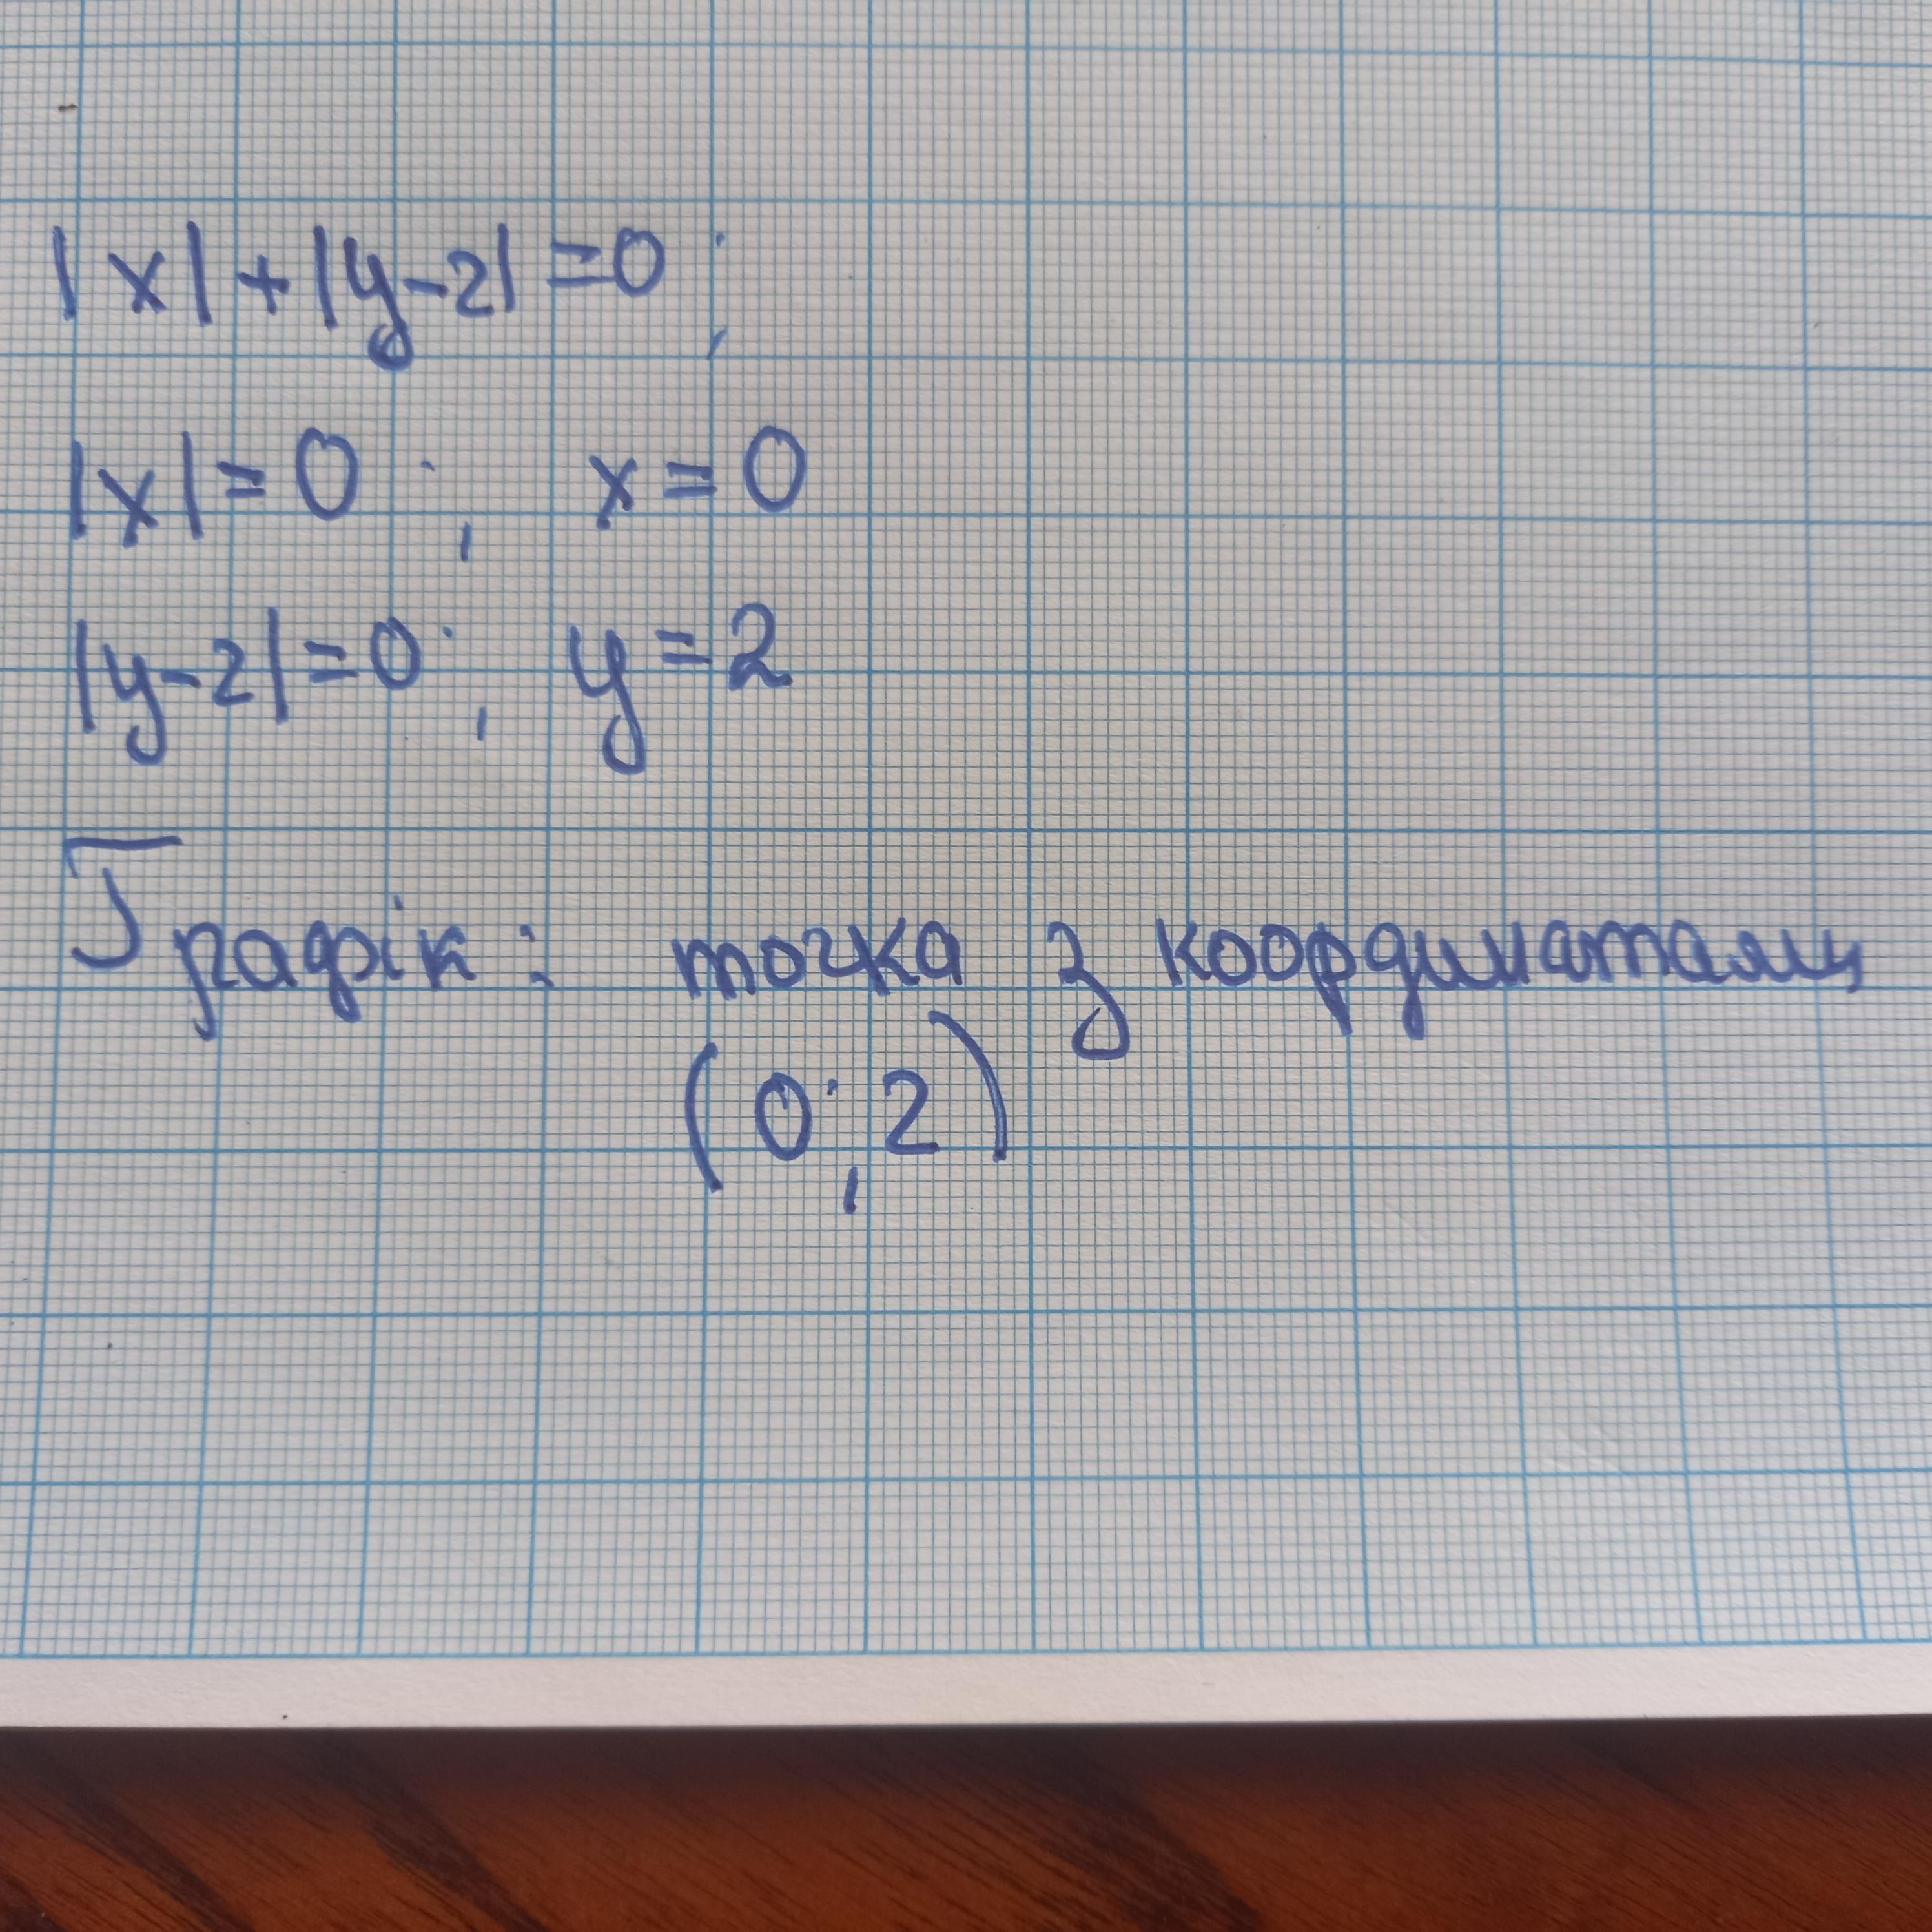 |x|+|y-2|=0;
|x|=0; x=0
|y-2|=0; y=2
Графік: точка з координатами
(0;2)